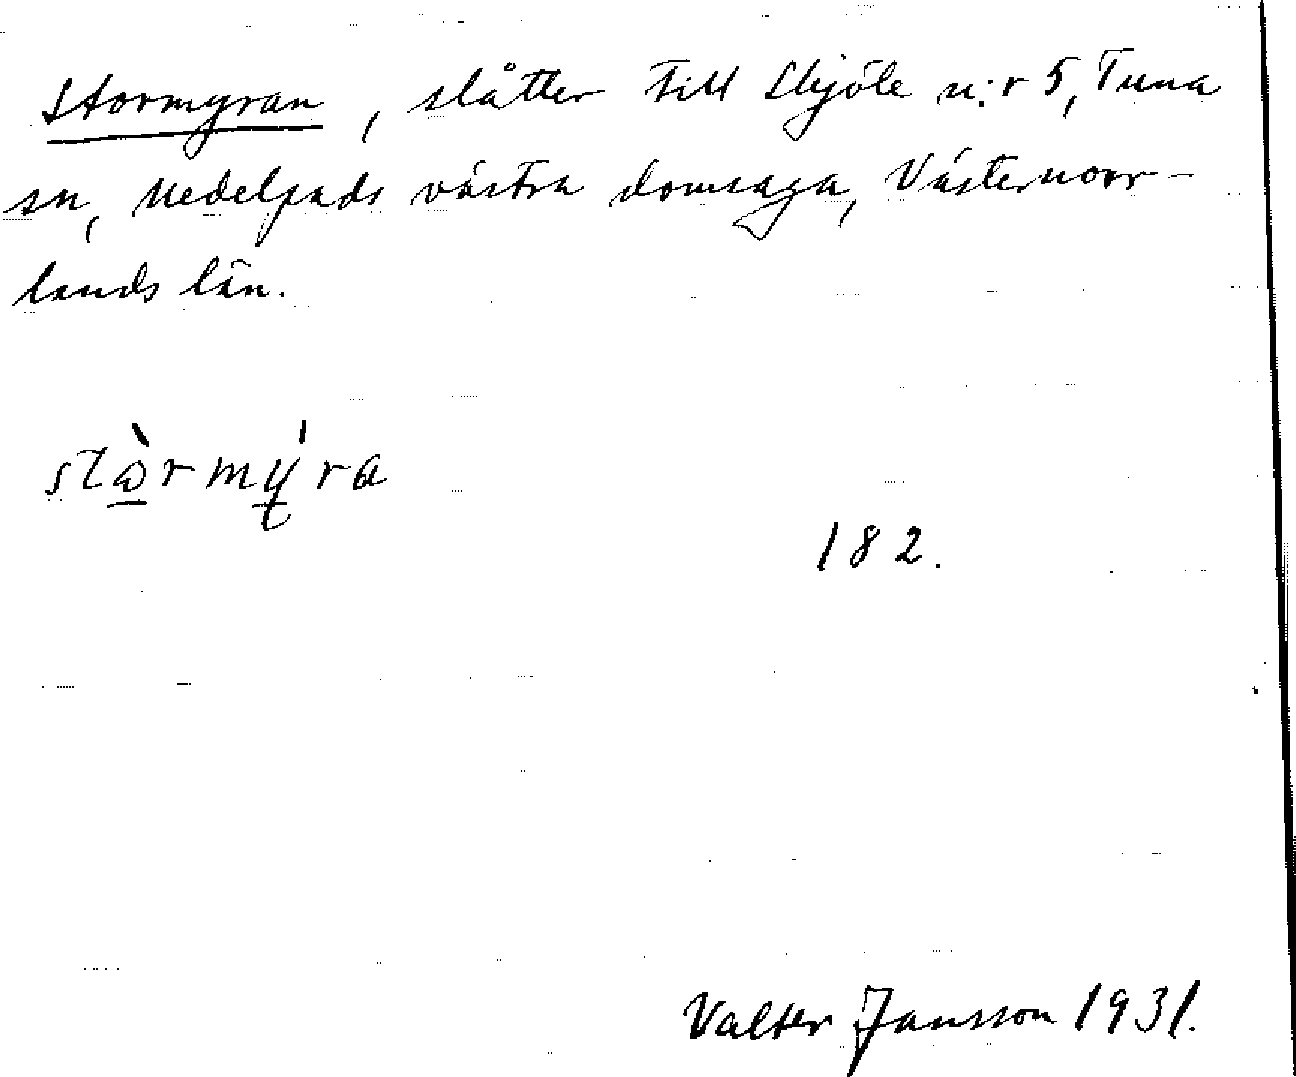 Stormyran, slåtter till Skjöle n:r 5, Tuna
sn, Medelpads västra domsaga, Västernorr-
lands län.
stòrmýra
182.
Valter Jansson 1931.